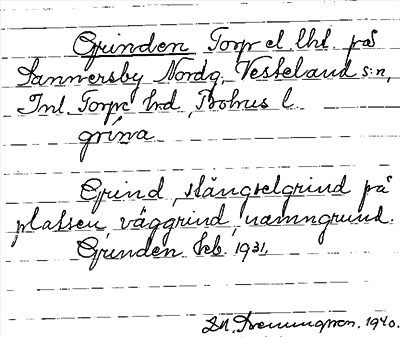 Grinden Torp el. lht. på
Sannersby Nordg. Västerlanda s:n,
Inl. Torpe hd, Bohus l.
grína
Grind, stängselgrind på
platsen, väggrind, namngrund.
Grinden Jeb. 1931,
1940.